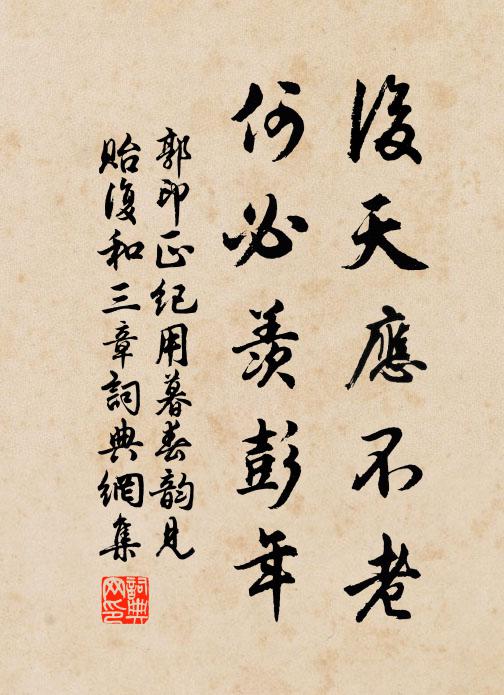 後天應不老
何必羨彭年
郭印正紀用暮春韵見
貽復和三章詞典網集
詞典網印